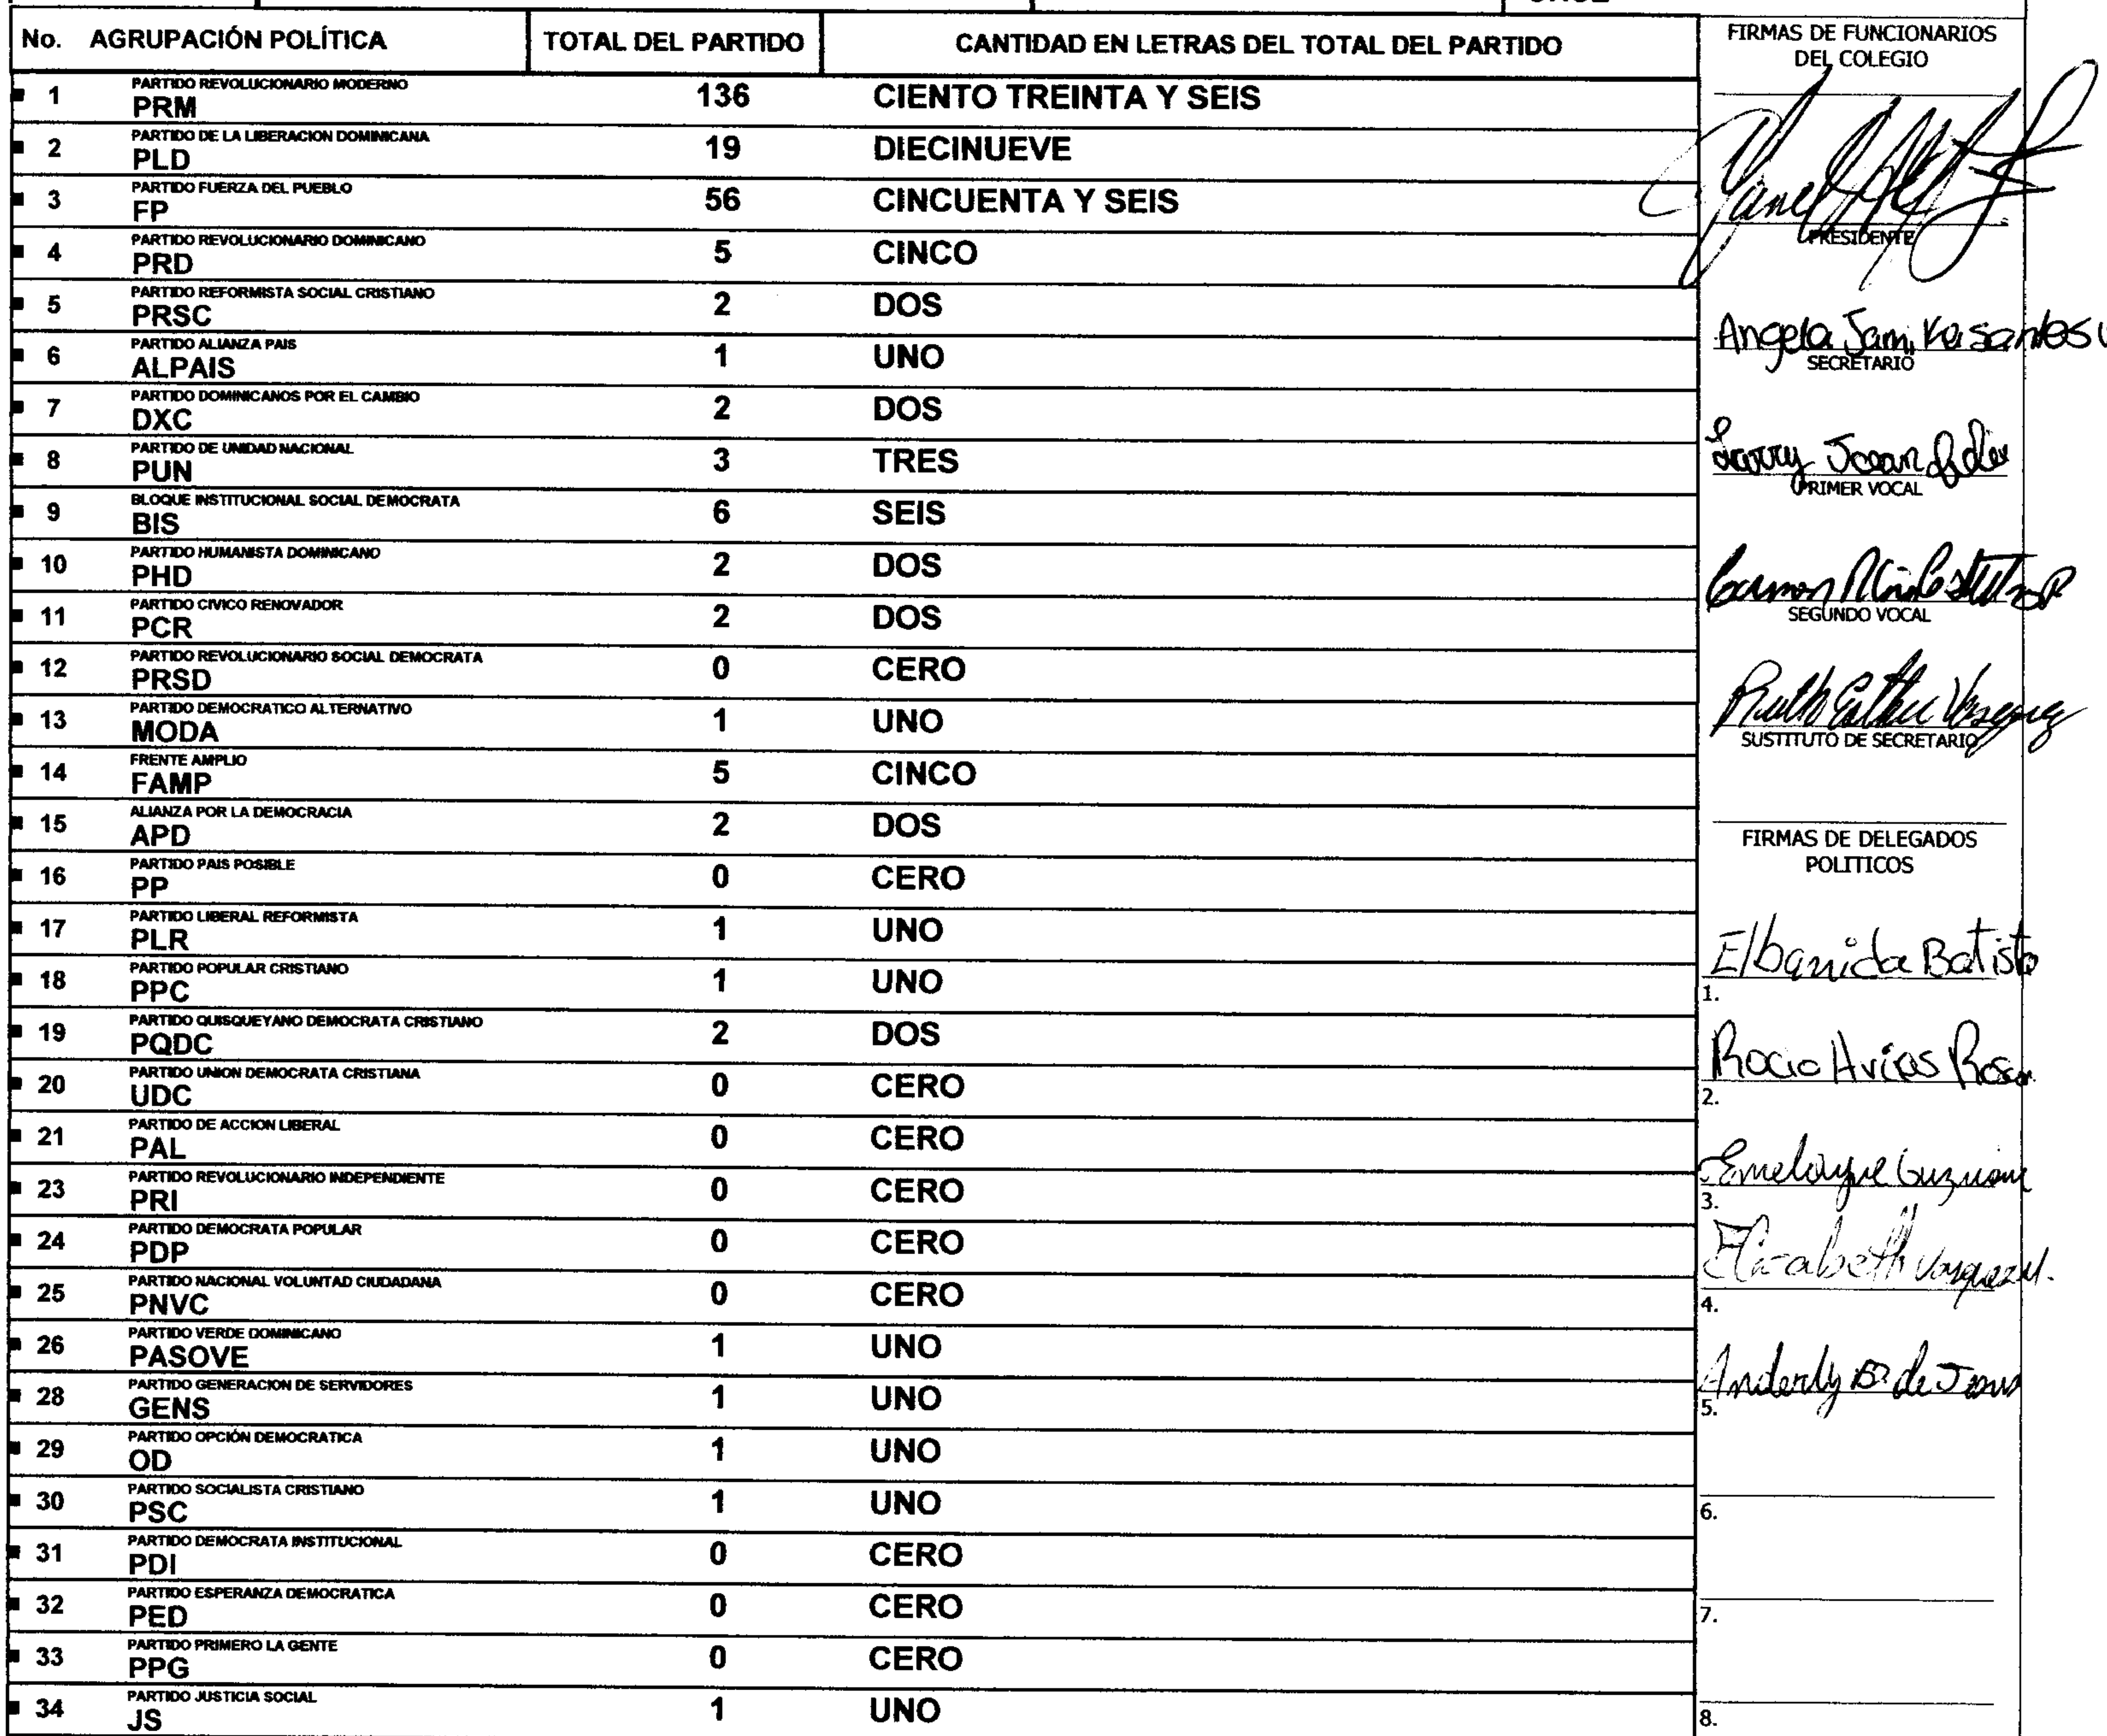 No. AGRUPACIÓN POLÍTICA TOTAL DEL PARTIDO CANTIDAD EN LETRAS DEL TOTAL DEL PARTIDO
PARTIDO REVOLUCIONARIO MODERNO
1 PRM 136 CIENTO TREINTA Y SEIS
PARTIDO DE LA LIBERACION DOMINICANA
2 PLD 19 DIECINUEVE
PARTIDO FUERZA DEL PUEBLO
3 FP 56 CINCUENTA Y SEIS
PARTIDO REVOLUCIONARIO DOMINICANO
4 PRD 5 CINCO
PARTIDO REFORMISTA SOCIAL CRISTIANO
5 PRSC 2 DOS
PARTIDO ALIANZA PAIS
6 ALPAIS 1 UNO
PARTIDO DOMINICANOS POR EL CAMBIO
7 DXC 2 DOS
PARTIDO DE UNIDAD NACIONAL
8 PUN 3 TRES
BLOQUE INSTITUCIONAL SOCIAL DEMOCRATA
9 BIS 6 SEIS
PARTIDO HUMANISTA DOMINICANO
10 PHD 2 DOS
PARTIDO CIVICO RENOVADOR
11 PCR 2 DOS
PARTIDO REVOLUCIONARIO SOCIAL DEMOCRATA
12 PRSD 0 CERO
PARTIDO DEMOCRATICO ALTERNATIVO
13 MODA 1 UNO
FRENTE AMPLIO
14 FAMP 5 CINCO
ALIANZA POR LA DEMOCRACIA
15 APD 2 DOS
PARTIDO PAIS POSIBLE
16 PP 0 CERO
PARTIDO LIBERAL REFORMISTA
17 PLR 1 UNO
PARTIDO POPULAR CRISTIANO
18 PPC 1 UNO
PARTIDO QUISQUEYANO DEMOCRATA CRISTIANO
19 PQDC 2 DOS
PARTIDO UNION DEMOCRATA CRISTIANA
20 UDC 0 CERO
PARTIDO DE ACCION LIBERAL
21 PAL 0 CERO
PARTIDO REVOLUCIONARIO INDEPENDIENTE
23 PRI 0 CERO
PARTIDO DEMOCRATA POPULAR
24 PDP 0 CERO
PARTIDO NACIONAL VOLUNTAD CIUDADANA
25 PNVC 0 CERO
PARTIDO VERDE DOMINICANO
26 PASOVE 1 UNO
PARTIDO GENERACION DE SERVIDORES
28 GENS 1 UNO
PARTIDO OPCIÓN DEMOCRATICA
29 OD 1 UNO
PARTIDO SOCIALISTA CRISTIANO
30 PSC 1 UNO
PARTIDO DEMOCRATA INSTITUCIONAL
31 PDI 0 CERO
PARTIDO ESPERANZA DEMOCRATICA
32 PED 0 CERO
PARTIDO PRIMERO LA GENTE
33 PPG 0 CERO
PARTIDO JUSTICIA SOCIAL
34 JS 1 UNO
FIRMAS DE FUNCIONARIOS
DEL COLEGIO
PRESIDENTE
Angela
SECRETARIO
PRIMER VOCAL
SEGUNDO VOCAL
Ruth Esther
SUSTITUTO DE SECRETARIO
FIRMAS DE DELEGADOS
POLITICOS
Elbanida Batista
1.
Rocio
2.
Guzman
3.
Elizabeth Vasquez M.
4.
Anderly B. de Jesus
5.
6.
7.
8.